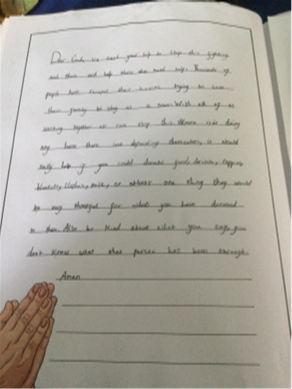 Dear God, we need your help to stop this fighting
and there and help those who need help. Thousands of
people have escaped their homes trying to keep
their family to stay as a team. With all of us
working together we can stop this. Ukraine is in doing
any have there and defending themselves, it would
really help if you could donate food, devices, nappies,
blankets, clothes, or one thing they would
be very thankful for what you have donated
to them. Also be kind about what you say, you
don't know what that person has been through.
Amen